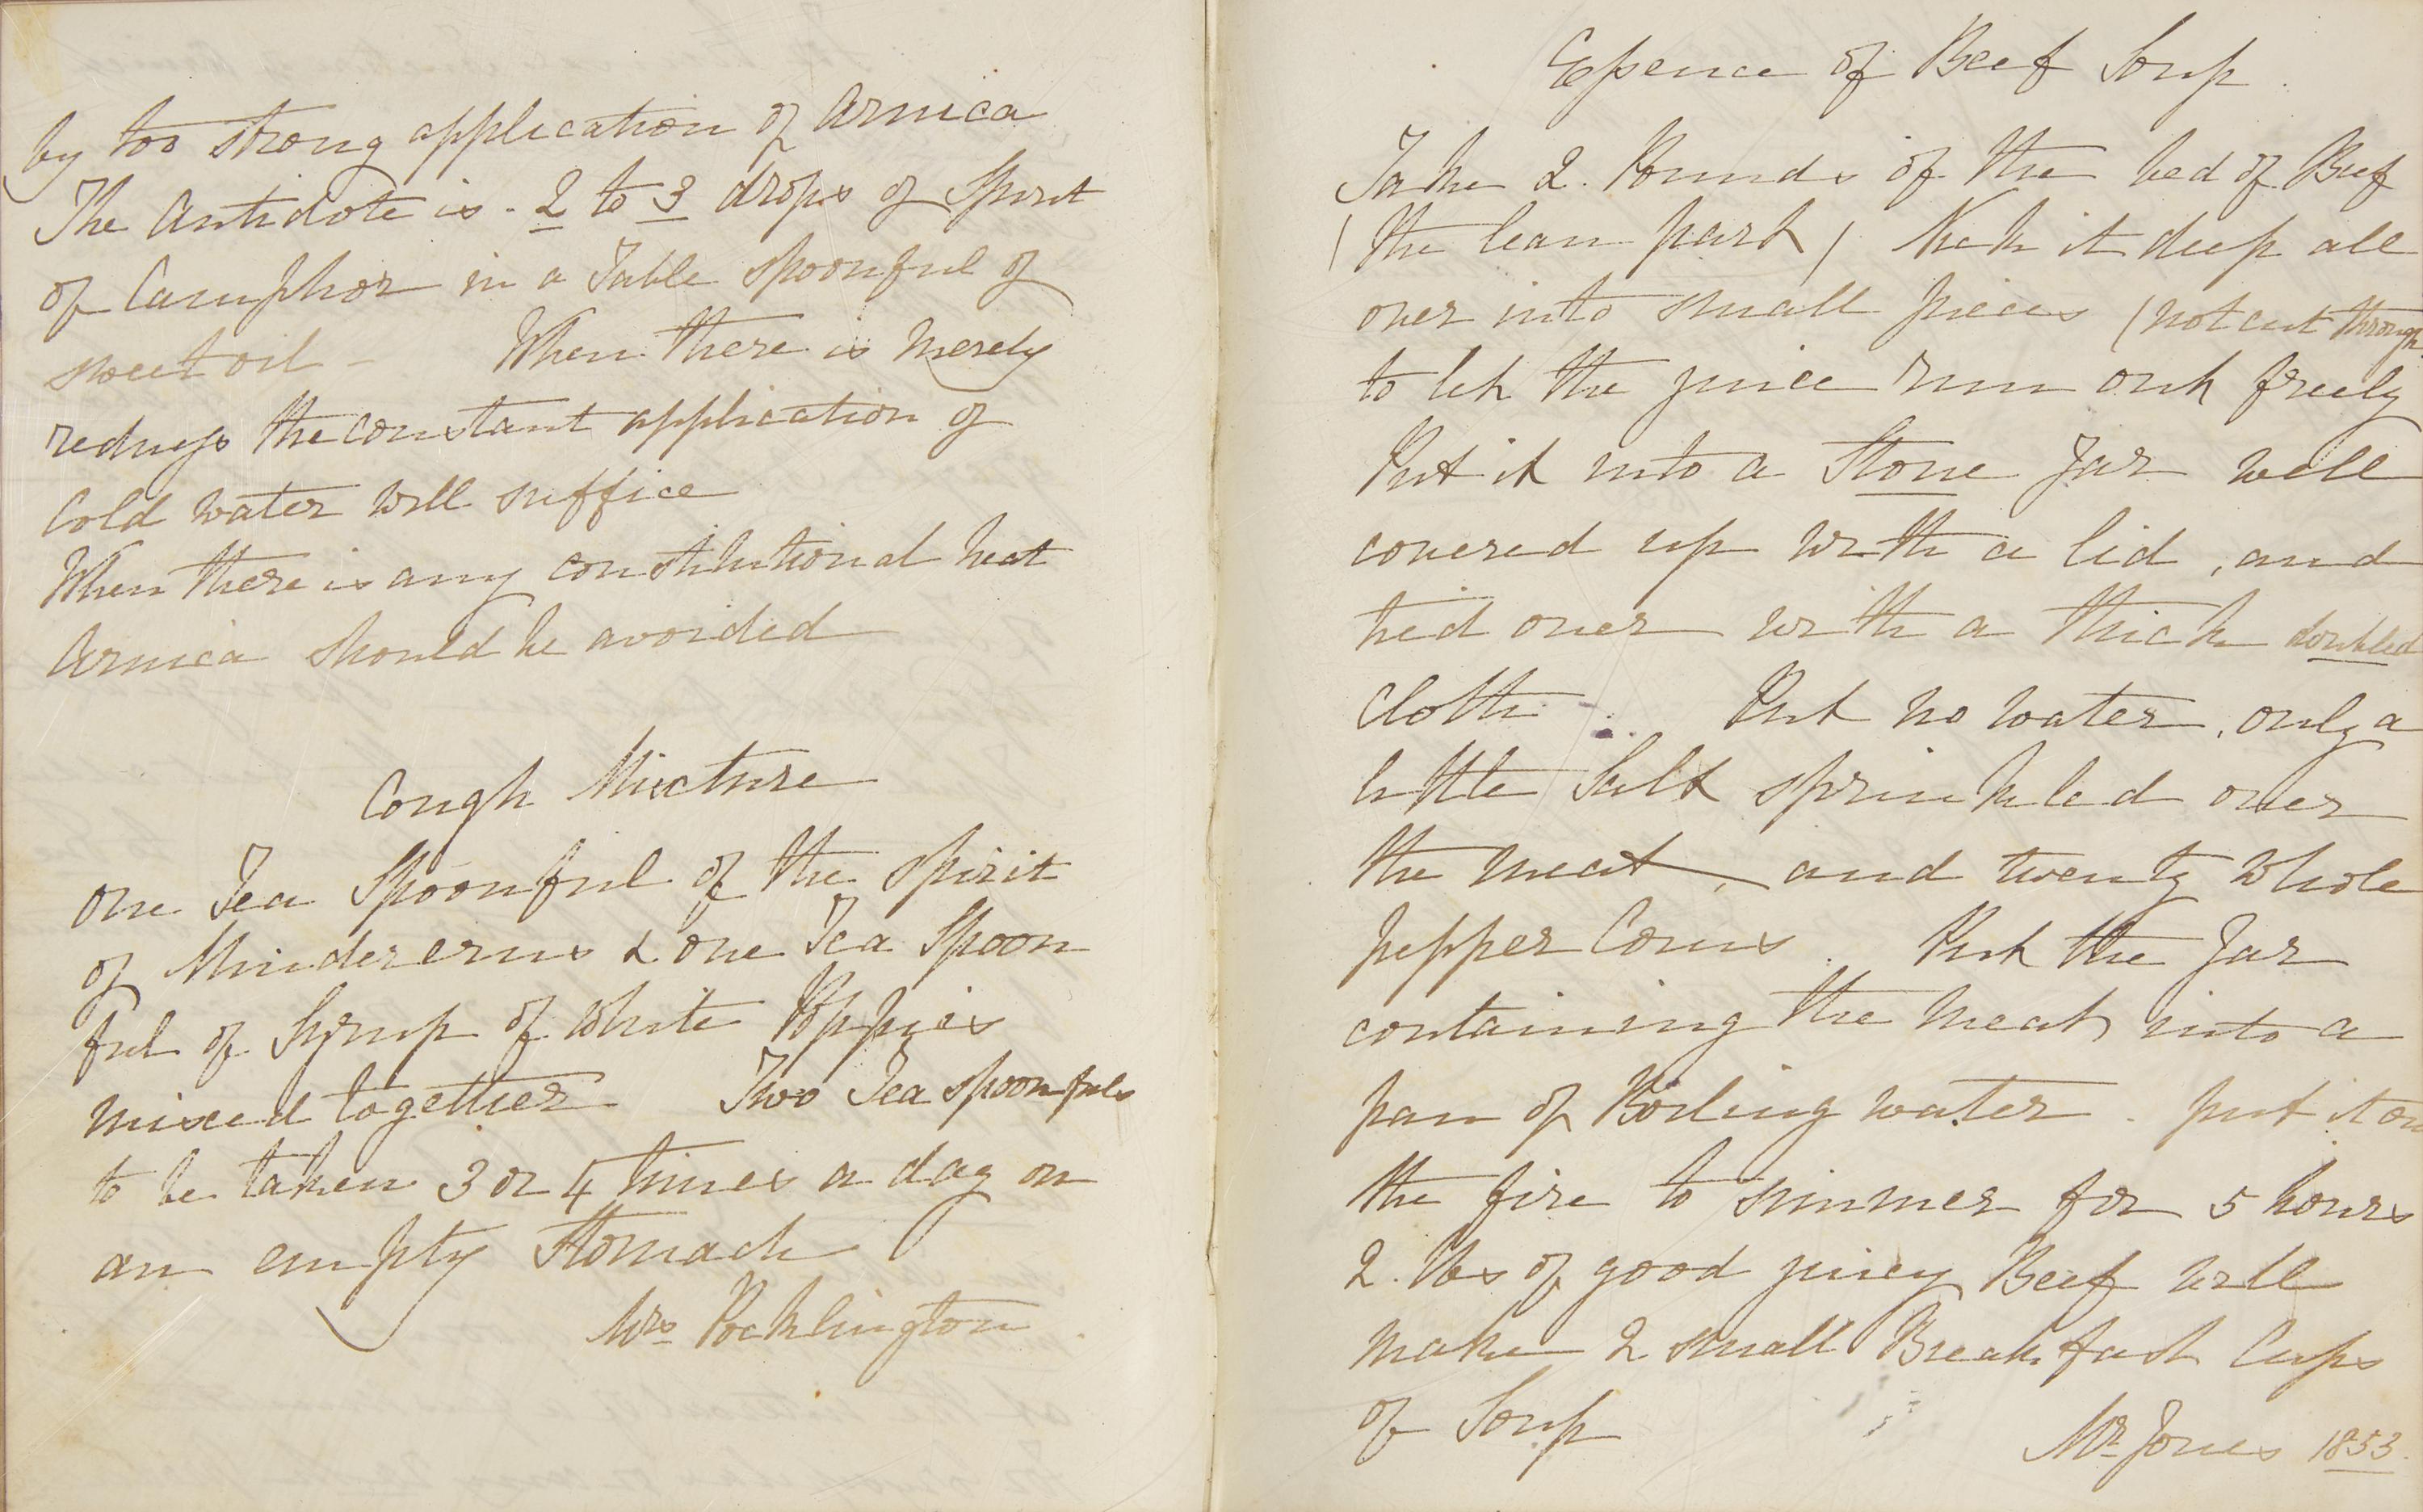 by too strong application of Arnica
The Antidote is . 2 to 3 drops of Spirit
of Camphor in a Table spoonful of
sweet oil - When there is merely
redness the constant application of
Cold water will suffice
When there is any constitutional heat
Arnica should be avoided
Cough Mixture
One Tea Spoonful of the spirit
of Mindererus & one Tea Spoon
ful of Syrup of White Poppies
mixed together Two Tea spoonfuls
to be taken 3 or 4 times a day on
an empty Stomach
Mrs Pocklington
Essence of Beef Soup.
Take 2. Pounds of the bed of Beef
(the lean part) Nick it deep all
over into small pieces (not cut through
to let the juice run out freely
Put it into a Stone Jar well
covered up with a lid, and
tied over with a thick doubled
Cloth. Put no water, only a
little Salt sprinkled over
the meat, and twenty whole
pepper Corns. Put the Jar
containing the meat into a
pan of Boiling water. put it on
the fire to simmer for 5 hours
2. lbs of good juicy Beef will
make 2 small Breakfast Cups
of Soup
Mr Jones 1853.